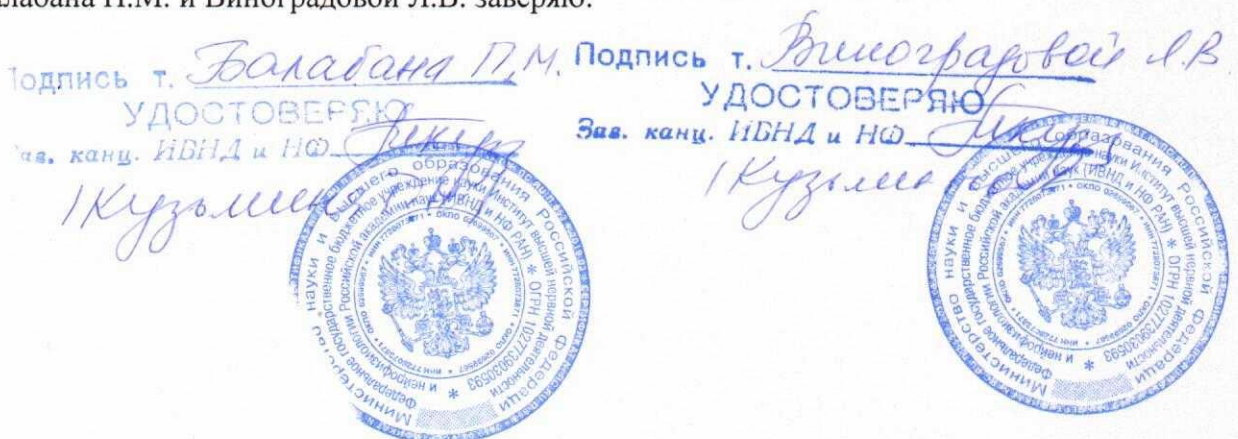 алабана П.М. и Виноградовой Л.В. заверяю.
Подпись т. Балабана П.М.
УДОСТОВЕРЯЮ
Зав. канц. ИВНД и НФ
Подпись т. Виноградовой Л.В
УДОСТОВЕРЯЮ
Зав. канц. ИВНД и НФ
Министерство науки и высшего образования Российской Федерации
Федеральное государственное бюджетное учреждение науки Институт высшей нервной деятельности
и нейрофизиологии Российской академии наук (ИВНД и НФ РАН) * ОГРН 1027739030593 *
Министерство науки и высшего образования Российской Федерации
Федеральное государственное бюджетное учреждение науки Институт высшей нервной деятельности
и нейрофизиологии Российской академии наук (ИВНД и НФ РАН) * ОГРН 1027739030593 *